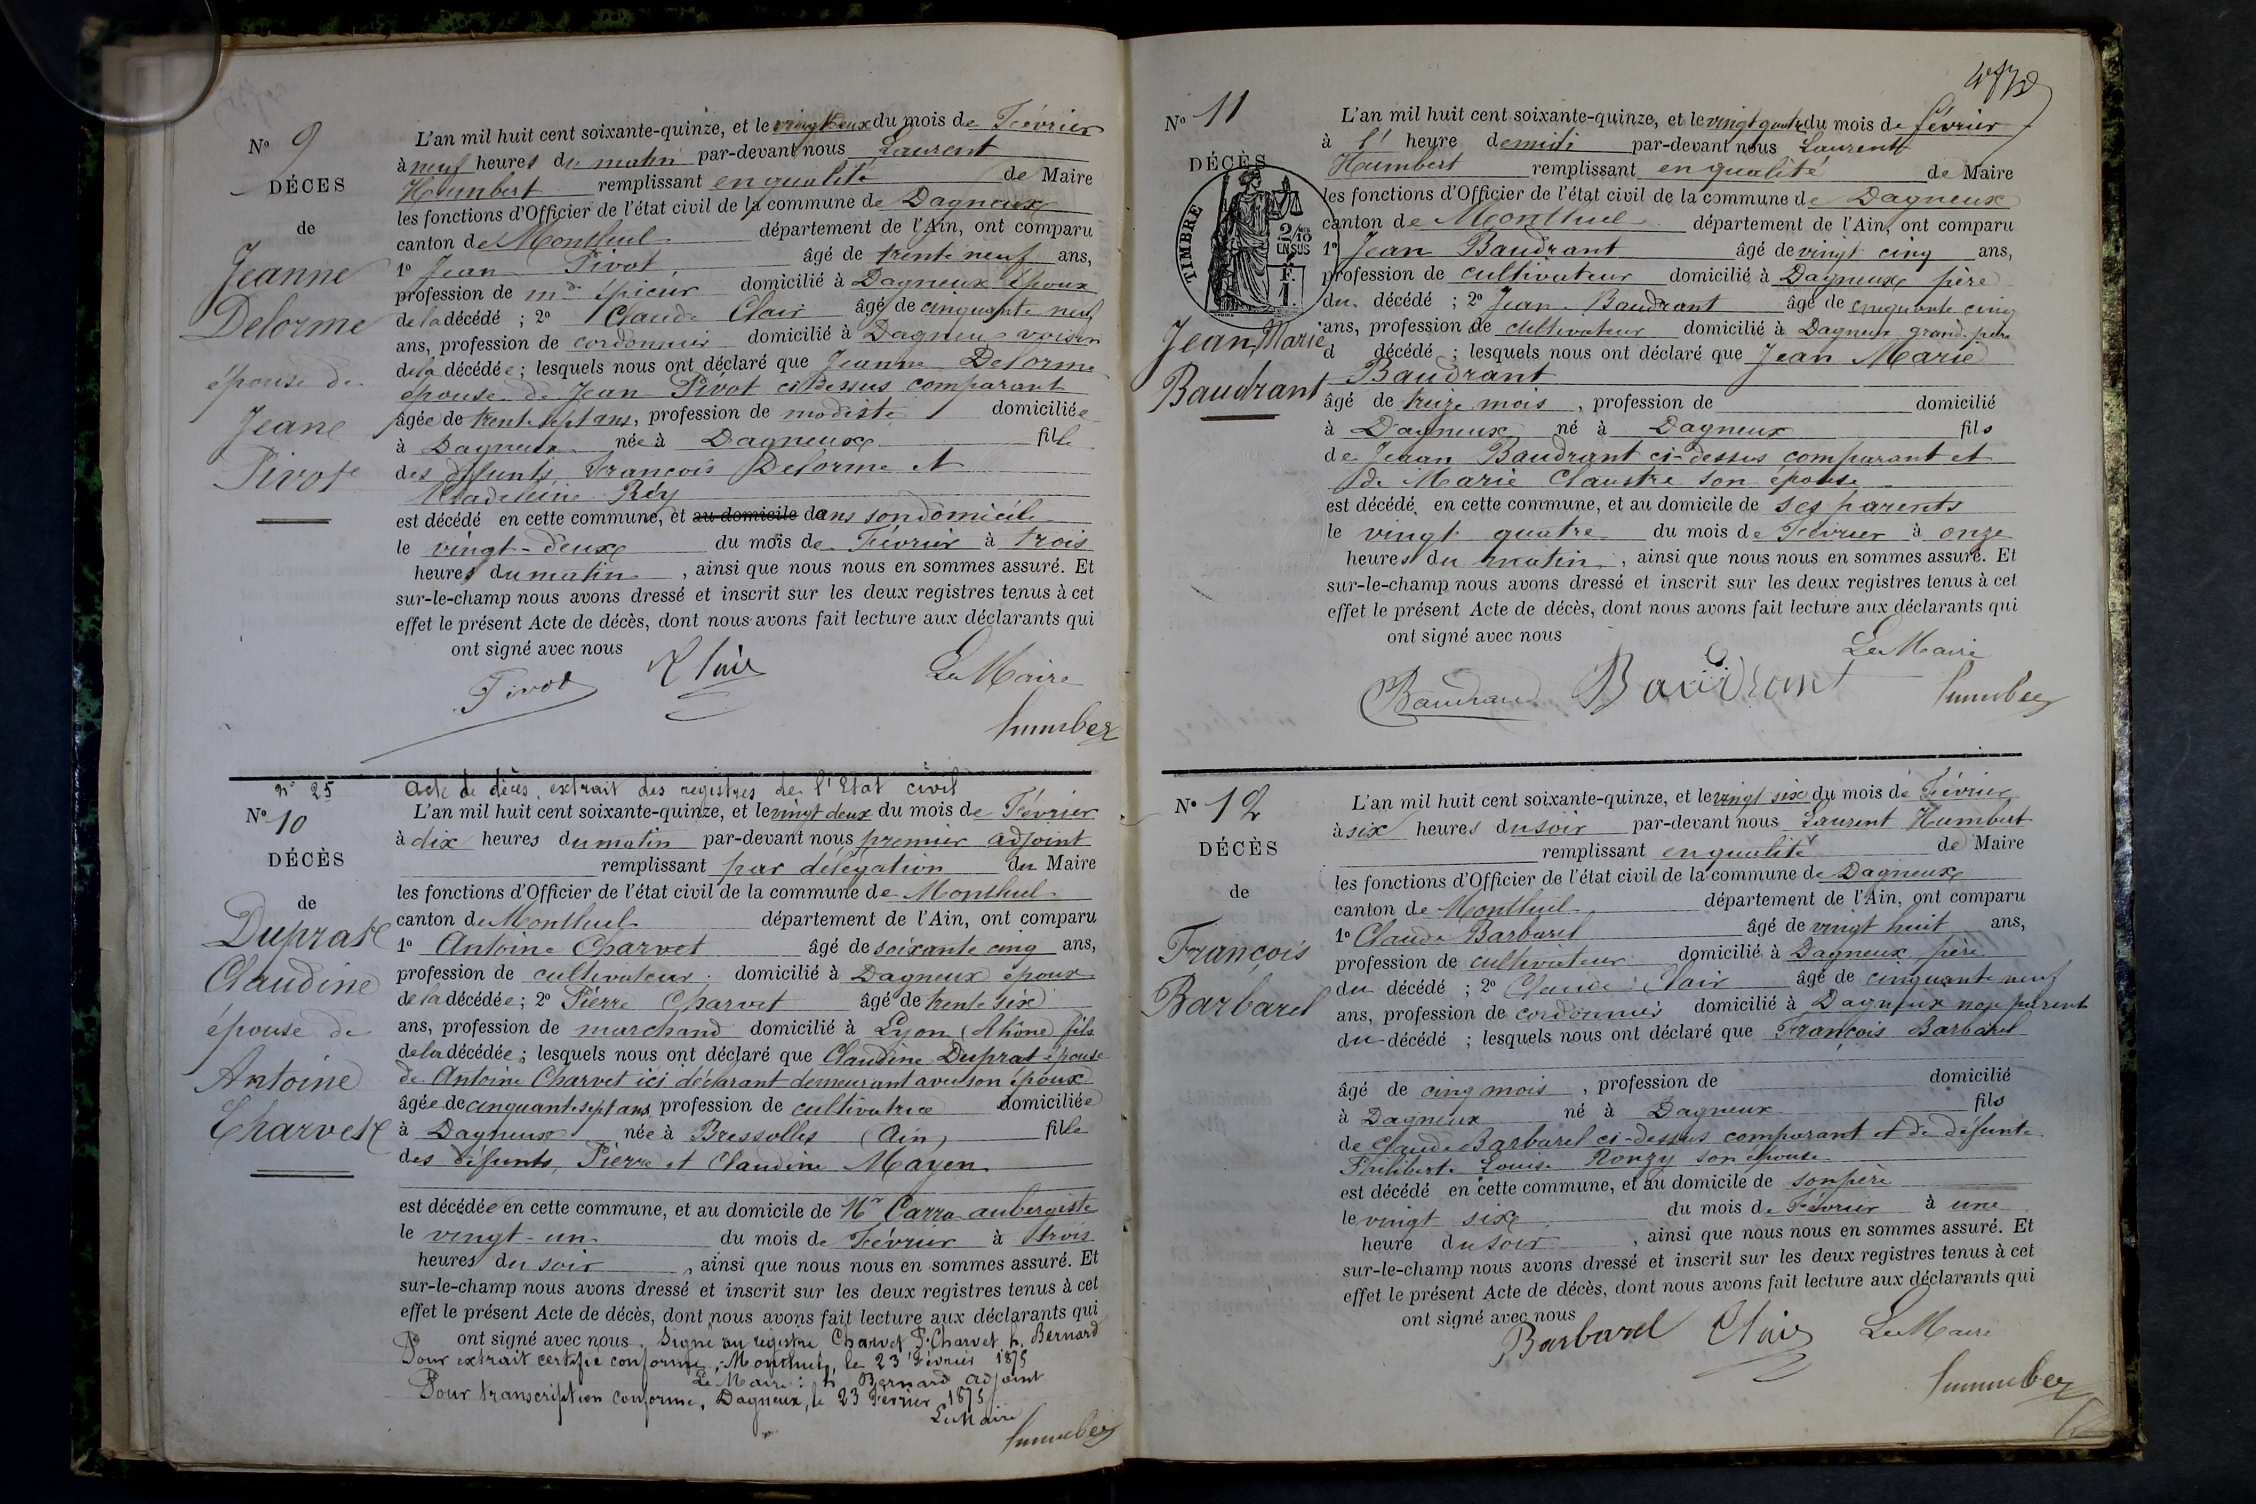 N° 9
DÉCES
de
Jeanne
Delorme
épouse de
Jeane
Pivot
L'an mil huit cent soixante-quinze, et le vingt deux du mois de Février
à neuf heures du matin par-devant nous Laurent
Humbert remplissant en qualité de Maire
les fonctions d'Officier de l'état civil de la commune de Dagneux
canton de Montluel département de l'Ain, ont comparu
1° Jean Pivot âgé de trente neuf ans,
profession de md épicier domicilié à Dagneux époux
de la décédé ; 2° Claude Clair âgé de cinquante neuf
ans, profession de cordonnier domicilié à Dagneux voisin
de la décédée ; lesquels nous ont déclaré que Jeanne Delorme
épouse de Jean Pivot ci dessus comparant
âgée de trente sept ans, profession de modiste domiciliée
à Dagneux née à Dagneux fille
des défunts François Delorme et
Madeleine Réy
est décédé en cette commune, et au domicile dans son domicile
le vingt-deux du mois de Février à trois
heures du matin , ainsi que nous nous en sommes assuré. Et
sur-le-champ nous avons dressé et inscrit sur les deux registres tenus à cet
effet le présent Acte de décès, dont nous avons fait lecture aux déclarants qui
ont signé avec nous
Pivot Clair Le Maire
Humbert
n° 25 Acte de décès, extrait des registres de l'Etat civil
N° 10
DÉCÈS
de
Duprat
Claudine
épouse de
Antoine
Charvet
L'an mil huit cent soixante-quinze, et le vingt deux du mois de Février
à dix heures du matin par-devant nous premier adjoint
remplissant par délégation du Maire
les fonctions d'Officier de l'état civil de la commune de Montluel
canton de Montluel département de l'Ain, ont comparu
1° Antoine Charvet âgé de soixante cinq ans,
profession de cultivateur domicilié à Dagneux époux
de la décédée ; 2° Pierre Charvet âgé de trente six
ans, profession de marchand domicilié à Lyon (Rhône) fils
de la décédée ; lesquels nous ont déclaré que Claudine Duprat épouse
de Antoine Charvet ici déclarant demeurant avec son époux
âgée de cinquante sept ans, profession de cultivatrice domiciliée
à Dagneux née à Bressolles (Ain) fille
des défunts, Pierre et Claudine Mayen
est décédée en cette commune, et au domicile de Mr Carra aubergiste
le vingt-un du mois de Février à trois
heures du soir , ainsi que nous nous en sommes assuré. Et
sur-le-champ nous avons dressé et inscrit sur les deux registres tenus à cet
effet le présent Acte de décès, dont nous avons fait lecture aux déclarants qui
ont signé avec nous. Signé au registre Charvet P. Charvet h. Bernard
Pour extrait certifié conforme, Montluel, le 23 Février 1875
Le Maire : h. Bernard adjoint
Pour transcription conforme, Dagneux, le 23 Février 1875
Le Maire
Humbert
N° 11
DÉCÈS
TIMBRE
2/10 EN SUS
F.
1.
Jean Marie
Baudrant
L'an mil huit cent soixante-quinze, et le vingt quatre du mois de février
à l' heure de midi par-devant nous Laurent
Humbert remplissant en qualité de Maire
les fonctions d'Officier de l'état civil de la commune de Dagneux
canton de Montluel département de l'Ain, ont comparu
1° Jean Baudrant âgé de vingt cinq ans,
profession de cultivateur domicilié à Dagneux père
du décédé ; 2° Jean Baudrant âgé de cinquante cinq
ans, profession de cultivateur domicilié à Dagneux grand-père
d décédé ; lesquels nous ont déclaré que Jean Marie
Baudrant
âgé de treize mois , profession de domicilié
à Dagneux né à Dagneux fils
de Jean Baudrant ci-dessus comparant et
de Marie Claustre son épouse
est décédé en cette commune, et au domicile de ses parents
le vingt quatre du mois de Février à onze
heures du matin , ainsi que nous nous en sommes assuré. Et
sur-le-champ nous avons dressé et inscrit sur les deux registres tenus à cet
effet le présent Acte de décès, dont nous avons fait lecture aux déclarants qui
ont signé avec nous
Le Maire
Baudrand Baudrant Humbert
N° 12
DÉCÈS
de
François
Barbarel
L'an mil huit cent soixante-quinze, et le vingt six du mois de Février
à six heures du soir par-devant nous Laurent Humbert
remplissant en qualité de Maire
les fonctions d'Officier de l'état civil de la commune de Dagneux
canton de Montluel département de l'Ain, ont comparu
1° Claude Barbarel âgé de vingt huit ans,
profession de cultivateur domicilié à Dagneux père
du décédé ; 2° Claude Clair âgé de cinquante neuf
ans, profession de cordonnier domicilié à Dagneux non parent
du décédé ; lesquels nous ont déclaré que François Barbarel
âgé de cinq mois , profession de domicilié
à Dagneux né à Dagneux fils
de Claude Barbarel ci-dessus comparant et de défunte
Philiberte Louise Ronzy son épouse
est décédé en cette commune, et au domicile de son père
le vingt six du mois de Février à une
heure du soir , ainsi que nous nous en sommes assuré. Et
sur-le-champ nous avons dressé et inscrit sur les deux registres tenus à cet
effet le présent Acte de décès, dont nous avons fait lecture aux déclarants qui
ont signé avec nous
Barbarel Clair Le Maire
Humbert